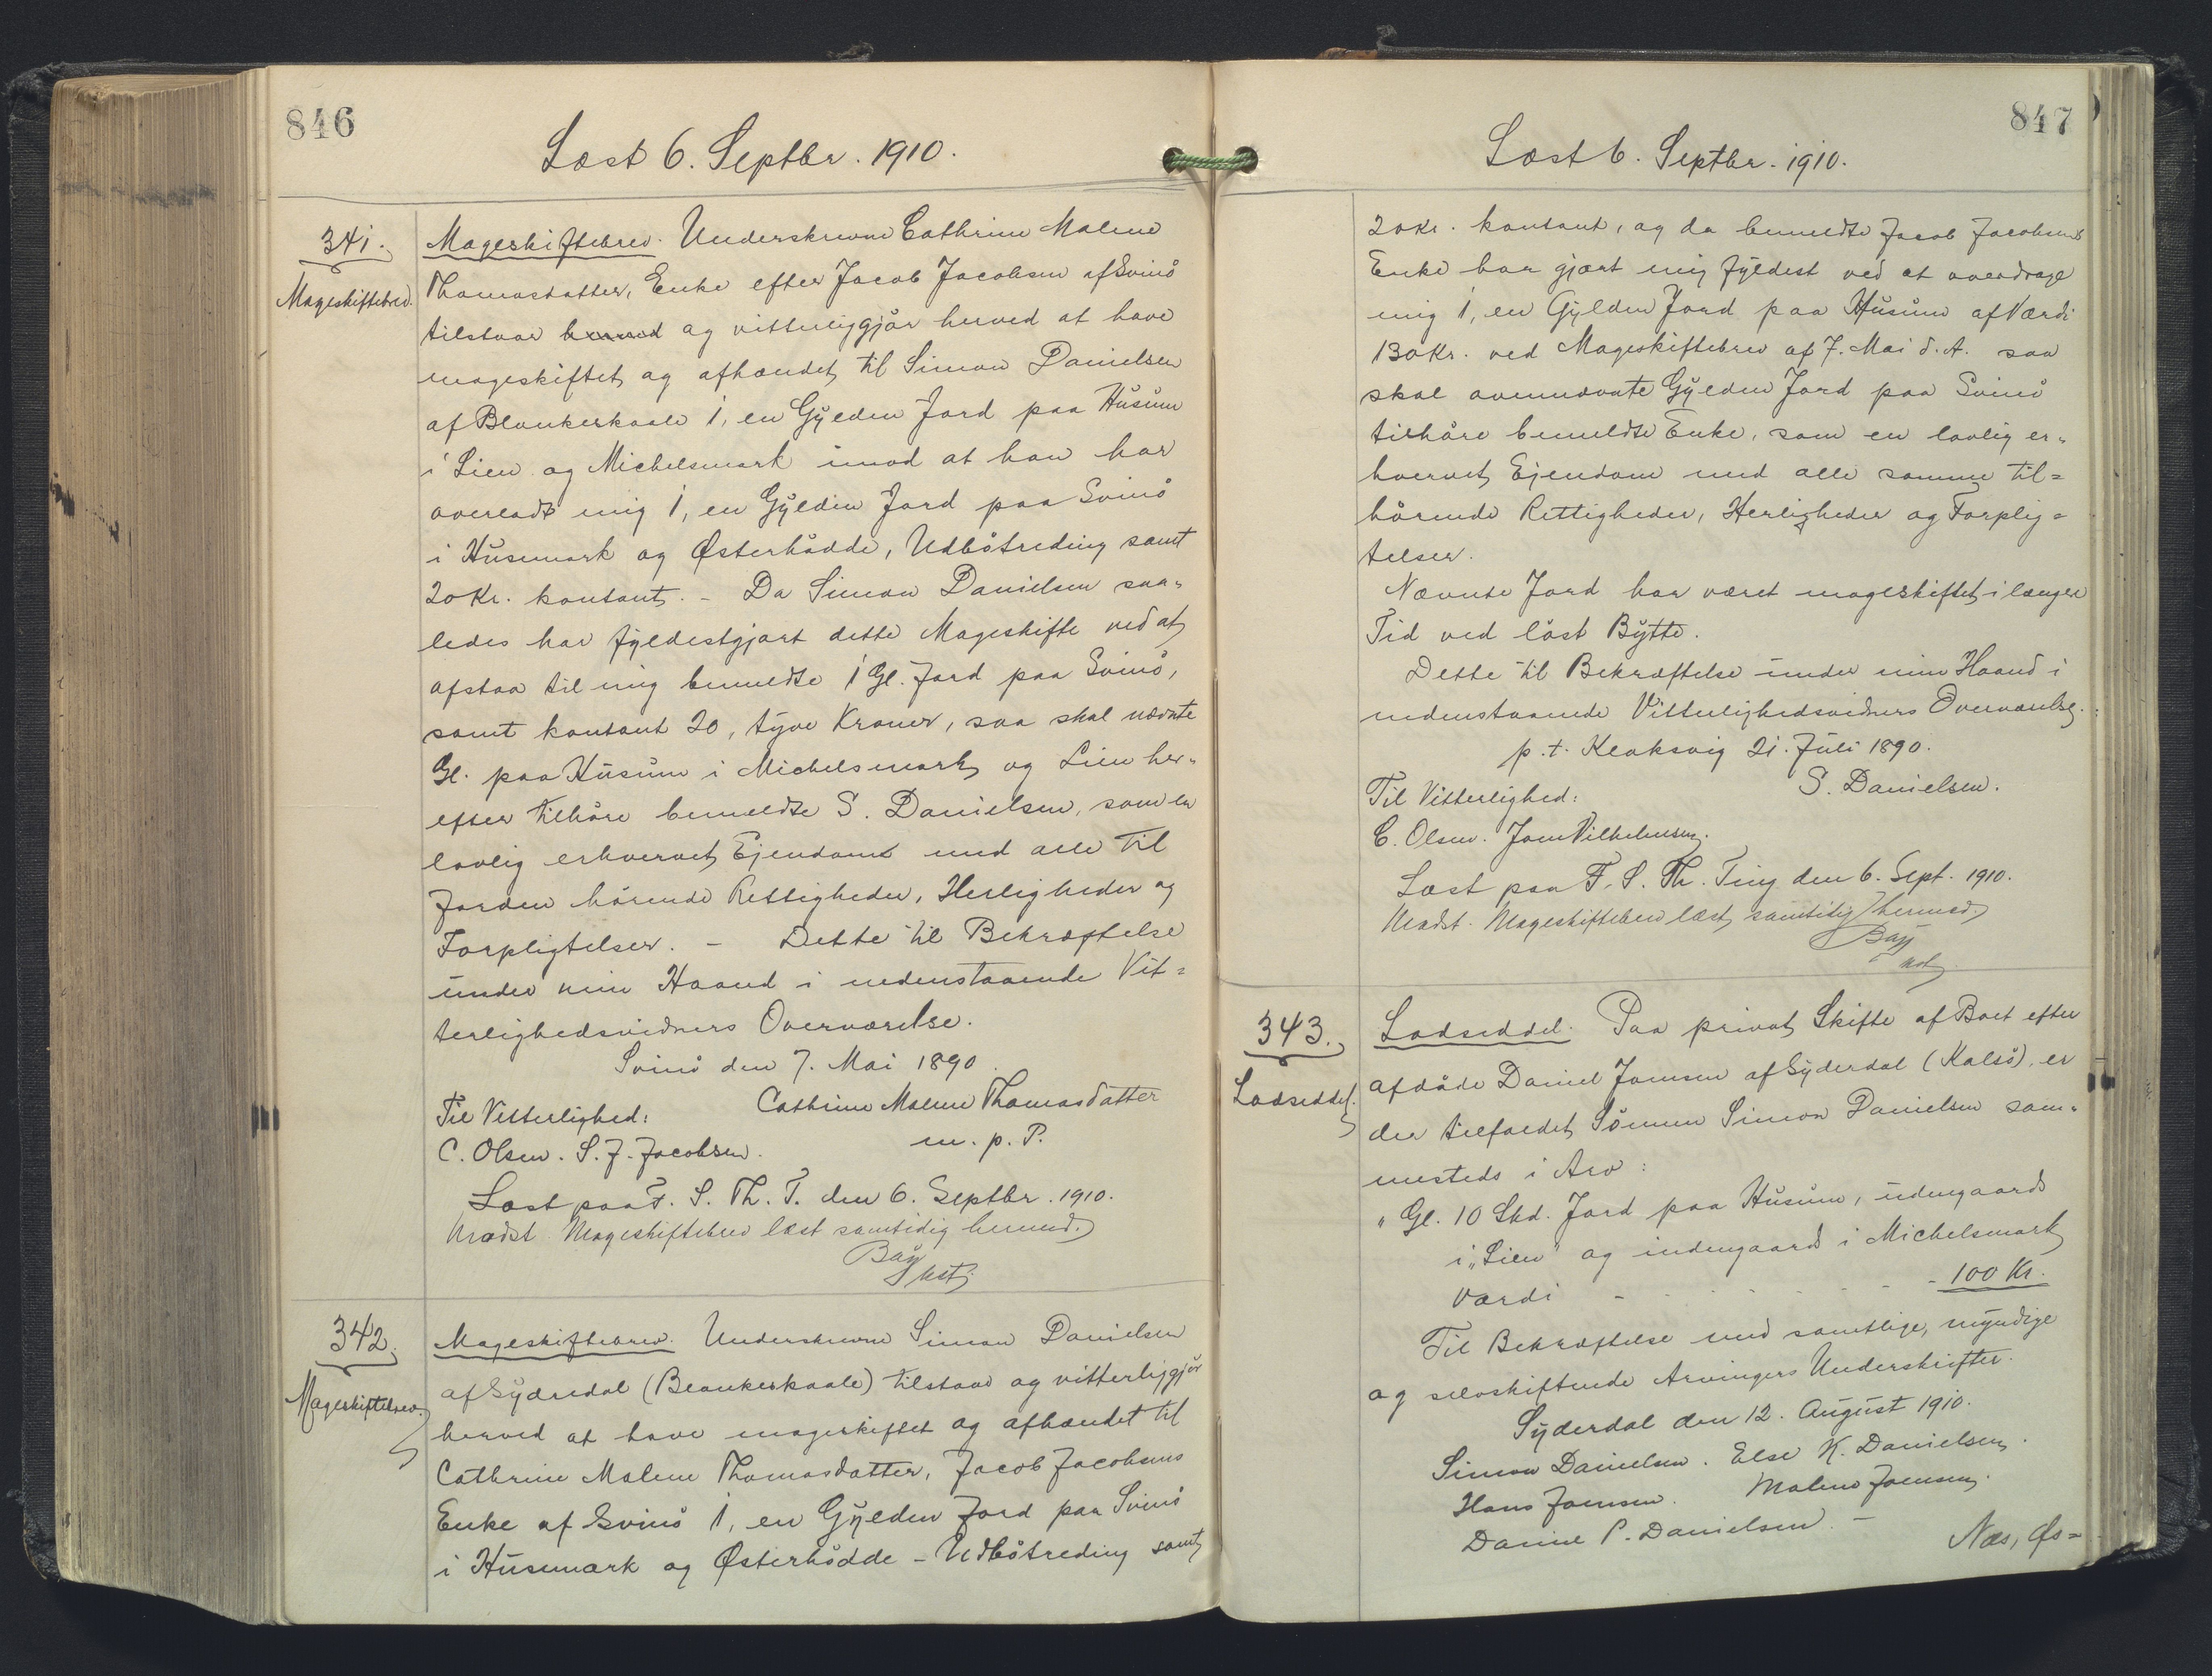 846
Læst 6. Septbr. 1910.
341.
Mageskiftebrev.
Mageskiftebrev. Underskrevne Cathrine Malene
Thomasdatter, Enke efter Jacob Jacobsen af Svinö
tilstaar herved og vitterliggjör herved at have
mageskiftet og afhændet til Simon Danielsen
af Blankeskaale 1, en Gylden Jord paa Husum
i Lien og Michelsmark imod at han har
overladt mig 1, en Gylden Jord paa Svinö
i Husemark og Østerhödde, Udbötreding samt
20 Kr. kontant. - Da Simon Danielsen saa-
ledes har fyldestgjort dette Mageskifte ved at
afstaa til mig bemeldte 1 Gl. Jord paa Svinö,
samt kontant 20, tyve Kroner, saa skal nævnte
Gl. paa Husum i Michelsmark og Lien her-
efter tilhöre bemeldte S. Danielsen, som en
lovlig erhvervet Ejendom med alle til
Jorden hörende Rettigheder, Herligheder og
Forpligtelser. - Dette til Bekræftelse
under min Haand i nedenstaaende Vit=
terlighedsvidners Overværelse.
Svinö den 7. Mai 1890.
Til Vitterlighed: Cathrine Malene Thomasdatter
C. Olsen. S. J. Jacobsen. m. p. P.
Læst paa F. S. Th. T. den 6. Septbr. 1910.
Modst. Mageskiftebrev læst samtidig hermed.
Bay
kst.
342.
Mageskiftebrev.
Mageskiftebrev. Underskrevne Simon Danielsen
af Syderdal (Blankeskaale) tilstaar og vitterliggjör
herved at have mageskiftet og afhændet til
Cathrine Malene Thomasdatter, Jacob Jacobsens
Enke af Svinö 1, en Gylden Jord paa Svinö
i Husemark og Østerhödde - Udbötreding samt
847
Læst 6. Septbr. 1910.
20 Kr. kontant, og da bemeldte Jacob Jacobsens
Enke har gjort mig fyldest ved at overdrage
mig 1, en Gylden Jord paa Husum af Værdi
130 Kr. ved Mageskiftebrev af 7. Mai d. A. saa
skal ovennævnte Gylden Jord paa Svinö
tilhöre bemeldte Enke, som en lovlig er-
hvervet Ejendom med alle samme til=
hörende Rettigheder, Herligheder og Forplig=
telser.
Nævnte Jord har været mageskiftet i længere
Tid ved löst Bytte.
Dette til Bekræftelse under min Haand i
nedenstaaende Vitterlighedsvidners Overværelse.
p. t. Klaksvig 21. Juli 1890.
Til Vitterlighed: S. Danielsen.
C. Olsen. Joen Vilhelmsen.
Læst paa F. S. Th. Ting den 6. Sept. 1910.
Modst. Mageskiftebrev læst samtidig hermed.
Bay
kst.
343.
Lodseddel.
Lodseddel. Paa privat Skifte af Boet efter
afdöde Daniel Joensen af Syderdal (Kalsö), er
der tilfaldet Sönnen Simon Danielsen sam-
mesteds i Arv:
" Gl. 10 Skd. Jord paa Husum, udengaards
i „Lien" og indengaards i Michelsmark
Værdi - - - - - - 100 Kr.
Til Bekræftelse med samtlige, myndige
og selvskiftende Arvingers Underskrifter.
Syderdal den 12. August 1910.
Simon Danielsen. Else K. Danielsen.
Hans Joensen. Malene Joensen.
Daniel P. Danielsen. -
Næs, Øs=